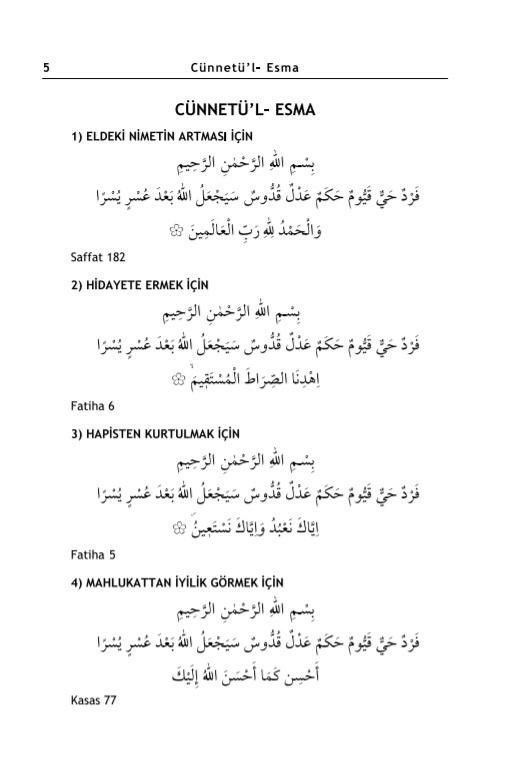 5 Cünnetü'l- Esma
CÜNNETÜ'L- ESMA
1) ELDEKİ NİMETİN ARTMASI İÇİN
بِسْمِ اللهِ الرَّحْمٰنِ الرَّحِيمِ
فَرْدٌ حَيٌّ قَيُّومٌ حَكَمٌ عَدْلٌ قُدُّوسٌ سَيَجْعَلُ اللهُ بَعْدَ عُسْرٍ يُسْرًا
وَالْحَمْدُ لِلّٰهِ رَبِّ الْعَالَمِينَ ۞
Saffat 182
2) HİDAYETE ERMEK İÇİN
بِسْمِ اللهِ الرَّحْمٰنِ الرَّحِيمِ
فَرْدٌ حَيٌّ قَيُّومٌ حَكَمٌ عَدْلٌ قُدُّوسٌ سَيَجْعَلُ اللهُ بَعْدَ عُسْرٍ يُسْرًا
اِهْدِنَا الصِّرَاطَ الْمُسْتَقِيمَۙ ۞
Fatiha 6
3) HAPİSTEN KURTULMAK İÇİN
بِسْمِ اللهِ الرَّحْمٰنِ الرَّحِيمِ
فَرْدٌ حَيٌّ قَيُّومٌ حَكَمٌ عَدْلٌ قُدُّوسٌ سَيَجْعَلُ اللهُ بَعْدَ عُسْرٍ يُسْرًا
اِيَّاكَ نَعْبُدُ وَاِيَّاكَ نَسْتَعِينُۜ ۞
Fatiha 5
4) MAHLUKATTAN İYİLİK GÖRMEK İÇİN
بِسْمِ اللهِ الرَّحْمٰنِ الرَّحِيمِ
فَرْدٌ حَيٌّ قَيُّومٌ حَكَمٌ عَدْلٌ قُدُّوسٌ سَيَجْعَلُ اللهُ بَعْدَ عُسْرٍ يُسْرًا
أَحْسِن كَمَا أَحْسَنَ اللهُ إِلَيْكَ
Kasas 77